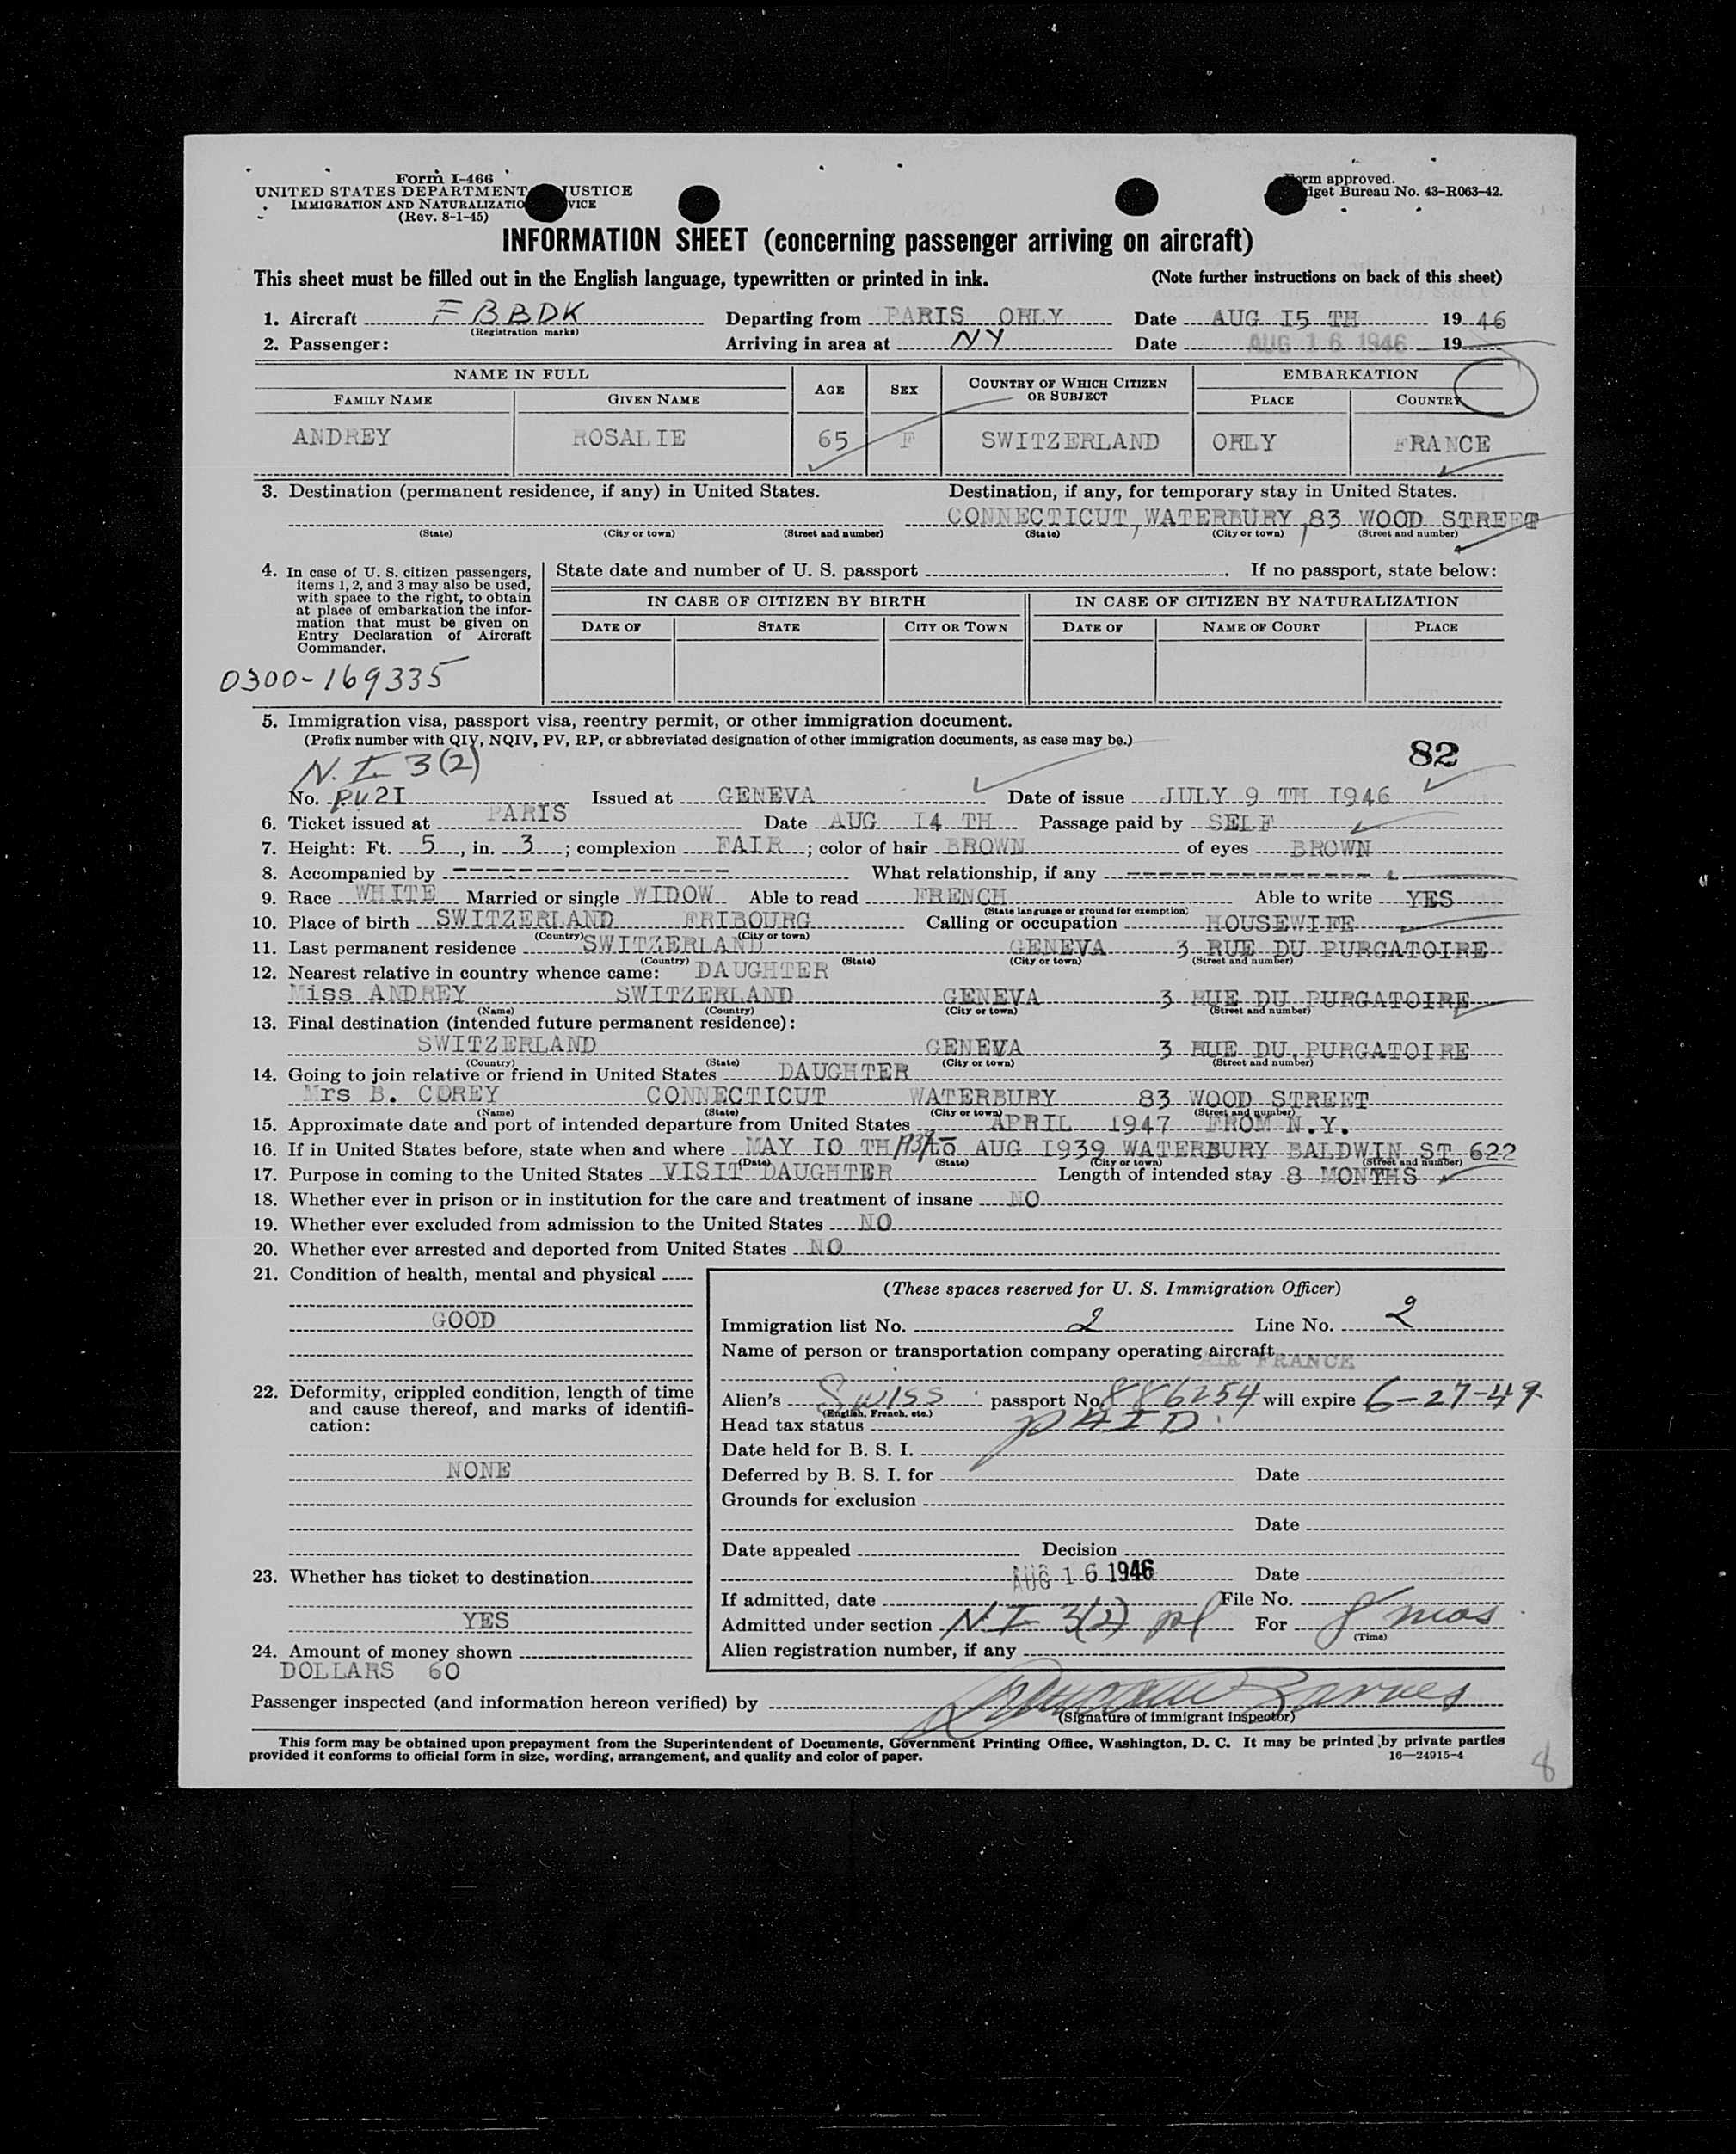 Form I-466
UNITED STATES DEPARTMENT JUSTICE
IMMIGRATION AND NATURALIZATIO VICE
(Rev. 8-1-45)
rm approved.
dget Bureau No. 43-R063-42.
INFORMATION SHEET (concerning passenger arriving on aircraft)
This sheet must be filled out in the English language, typewritten or printed in ink. (Note further instructions on back of this sheet)
1. Aircraft F BBDK Departing from PARIS ORLY Date AUG I5 TH 19 46
(Registration marks)
2. Passenger: Arriving in area at NY Date AUG 16 1946 19
NAME IN FULL AGE SEX COUNTRY OF WHICH CITIZEN OR SUBJECT EMBARKATION
FAMILY NAME GIVEN NAME PLACE COUNTRY
ANDREY ROSALIE 65 F SWITZERLAND ORLY FRANCE
3. Destination (permanent residence, if any) in United States. Destination, if any, for temporary stay in United States.
CONNECTICUT, WATERBURY, 83 WOOD STREET
(State) (City or town) (Street and number) (State) (City or town) (Street and number)
4. In case of U. S. citizen passengers,
items 1, 2, and 3 may also be used,
with space to the right, to obtain
at place of embarkation the infor-
mation that must be given on
Entry Declaration of Aircraft
Commander.
State date and number of U. S. passport If no passport, state below:
IN CASE OF CITIZEN BY BIRTH IN CASE OF CITIZEN BY NATURALIZATION
DATE OF STATE CITY OR TOWN DATE OF NAME OF COURT PLACE
0300-169335
5. Immigration visa, passport visa, reentry permit, or other immigration document.
(Prefix number with QIV, NQIV, PV, RP, or abbreviated designation of other immigration documents, as case may be.)
82
N. I. 3(2)
No. PV2I Issued at GENEVA Date of issue JULY 9 TH I946
6. Ticket issued at PARIS Date AUG I4 TH Passage paid by SELF
7. Height: Ft. 5, in. 3; complexion FAIR; color of hair BROWN of eyes BROWN
8. Accompanied by What relationship, if any
9. Race WHITE Married or single WIDOW Able to read FRENCH Able to write YES
(State language or ground for exemption)
10. Place of birth SWITZERLAND FRIBOURG Calling or occupation HOUSEWIFE
(Country) (City or town)
11. Last permanent residence SWITZERLAND GENEVA 3 RUE DU PURGATOIRE
(Country) (State) (City or town) (Street and number)
12. Nearest relative in country whence came: DAUGHTER
Miss ANDREY SWITZERLAND GENEVA 3 RUE DU PURGATOIRE
(Name) (Country) (City or town) (Street and number)
13. Final destination (intended future permanent residence):
SWITZERLAND GENEVA 3 RUE DU PURGATOIRE
(Country) (State) (City or town) (Street and number)
14. Going to join relative or friend in United States DAUGHTER
Mrs B. COREY CONNECTICUT WATERBURY 83 WOOD STREET
(Name) (State) (City or town) (Street and number)
15. Approximate date and port of intended departure from United States APRIL I947 FROM N.Y.
16. If in United States before, state when and where MAY IO TH to AUG I939 WATERBURY BALDWIN ST 622
(Date) (State) (City or town) (Street and number)
17. Purpose in coming to the United States VISIT DAUGHTER Length of intended stay 8 MONTHS
18. Whether ever in prison or in institution for the care and treatment of insane NO
19. Whether ever excluded from admission to the United States NO
20. Whether ever arrested and deported from United States NO
21. Condition of health, mental and physical
GOOD
22. Deformity, crippled condition, length of time
and cause thereof, and marks of identifi-
cation:
NONE
23. Whether has ticket to destination
YES
24. Amount of money shown
DOLLARS 60
(These spaces reserved for U. S. Immigration Officer)
Immigration list No. 2 Line No. 2
Name of person or transportation company operating aircraft
AIR FRANCE
Alien's Swiss passport No. 886254 will expire 6-27-49
(English, French, etc.)
Head tax status PAID
Date held for B. S. I.
Deferred by B. S. I. for Date
Grounds for exclusion
Date
Date appealed Decision
AUG 16 1946 Date
If admitted, date File No.
Admitted under section N I 3(2) For 8 mos
(Time)
Alien registration number, if any
Passenger inspected (and information hereon verified) by Barnes
(Signature of immigrant inspector)
This form may be obtained upon prepayment from the Superintendent of Documents, Government Printing Office, Washington, D. C. It may be printed by private parties
provided it conforms to official form in size, wording, arrangement, and quality and color of paper. 16—24915-4
8